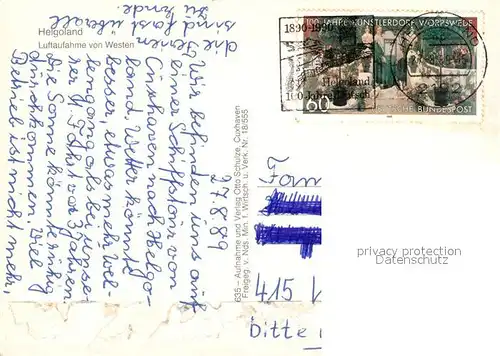 Helgoland
Luftaufnahme von Westen
die Ferien
sind fast überall
zu Ende.
27.8.89
Wir befinden uns auf
einer Schiffstour von
Cuxhaven nach Helgo-
land. Wetter könnte
besser, etwas mehr Wel-
lengang als bei unse-
rer 1. Fahrt vor 3 Jahren.
Die Sonne könnte ruhig
durchkommen. Viel
Betrieb ist nicht mehr,
635 – Aufnahme und Verlag Otto Schulze, Cuxhaven
Freigeg. v. Nds. Min. f. Wirtsch. u. Verk. Nr. 18/555
100 JAHRE KÜNSTLERDORF WORPSWEDE
60
DEUTSCHE BUNDESPOST
1890-1990
Helgoland
100 Jahre deutsch
Fam
415
bitte
privacy protection
Datenschutz